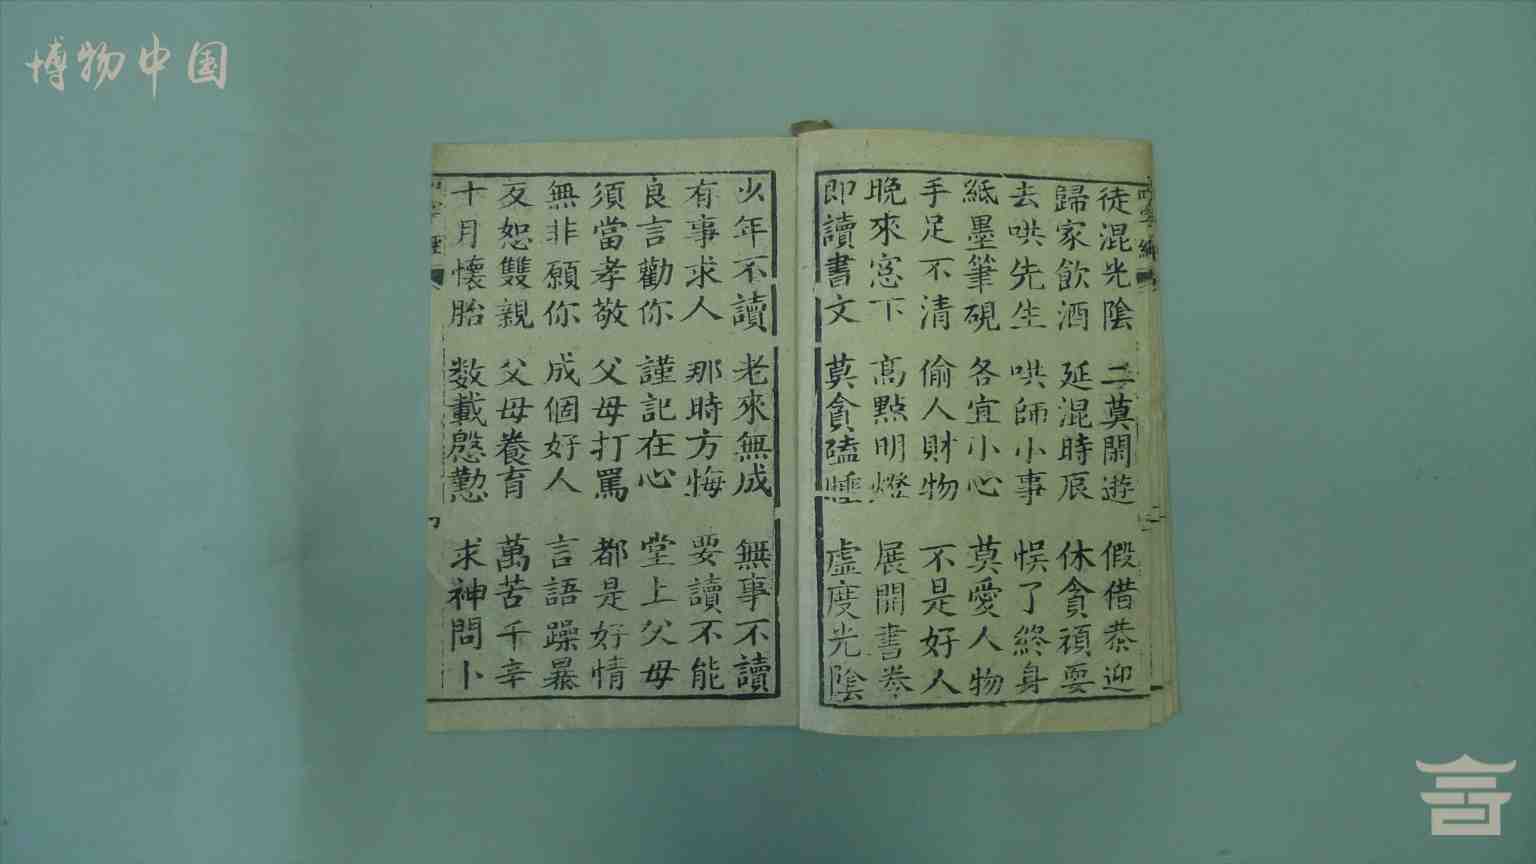 博物中国
徒混光陰 二莫閑遊 假借恭迎
歸家飲酒 延混時辰 休貪頑耍
去哄先生 哄師小事 悞了終身
紙墨筆硯 各宜小心 莫愛人物
手足不清 偷人財物 不是好人
晚來窓下 高點明燈 展開書卷
即讀書文 莫貪磕睡 虛度光陰
少年不讀 老來無成 無事不讀
有事求人 那時方悔 要讀不能
良言勸你 謹記在心 堂上父母
須當孝敬 父母打罵 都是好情
無非願你 成個好人 言語躁暴
友恕雙親 父母養育 萬苦千辛
十月懷胎 数載慇懃 求神問卜